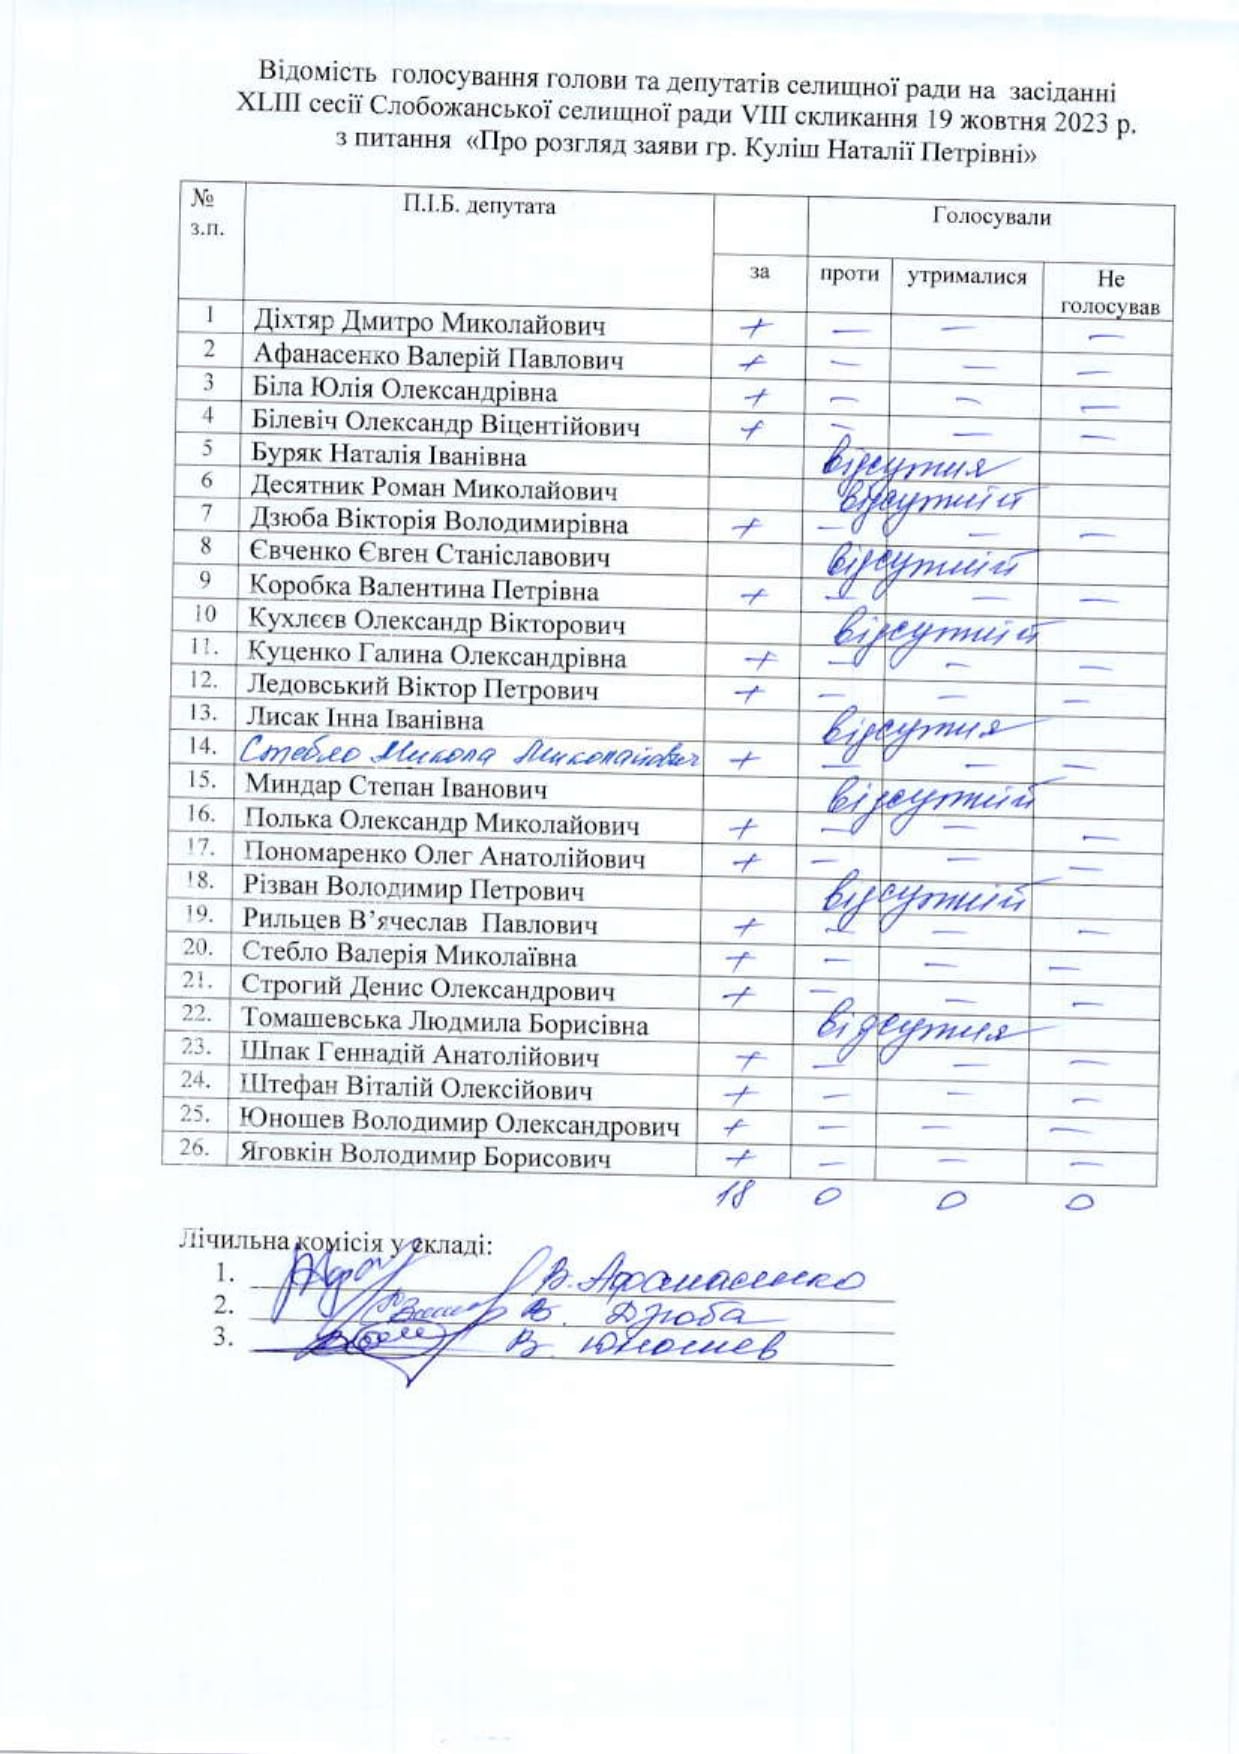 Відомість голосування голови та депутатів селищної ради на засіданні
XLIII сесії Слобожанської селищної ради VIII скликання 19 жовтня 2023 р.
з питання «Про розгляд заяви гр. Куліш Наталії Петрівні»
№ з.п. П.І.Б. депутата Голосували
за проти утрималися Не голосував
1 Діхтяр Дмитро Миколайович + — — —
2 Афанасенко Валерій Павлович + — — —
3 Біла Юлія Олександрівна + — — —
4 Білевіч Олександр Віцентійович + — — —
5 Буряк Наталія Іванівна відсутня
6 Десятник Роман Миколайович відсутній
7 Дзюба Вікторія Володимирівна + — — —
8 Євченко Євген Станіславович відсутній
9 Коробка Валентина Петрівна + — — —
10 Кухлєєв Олександр Вікторович відсутній
11. Куценко Галина Олександрівна + — — —
12. Ледовський Віктор Петрович + — — —
13. Лисак Інна Іванівна відсутня
14. Стебло Микола Миколайович + — — —
15. Миндар Степан Іванович відсутній
16. Полька Олександр Миколайович + — — —
17. Пономаренко Олег Анатолійович + — — —
18. Різван Володимир Петрович відсутній
19. Рильцев В’ячеслав Павлович + — — —
20. Стебло Валерія Миколаївна + — — —
21. Строгий Денис Олександрович + — — —
22. Томашевська Людмила Борисівна відсутня
23. Шпак Геннадій Анатолійович + — — —
24. Штефан Віталій Олексійович + — — —
25. Юношев Володимир Олександрович + — — —
26. Яговкін Володимир Борисович + — — —
18 0 0 0
Лічильна комісія у складі:
1. В. Афанасенко
2. В. Дзюба
3. В. Юношев